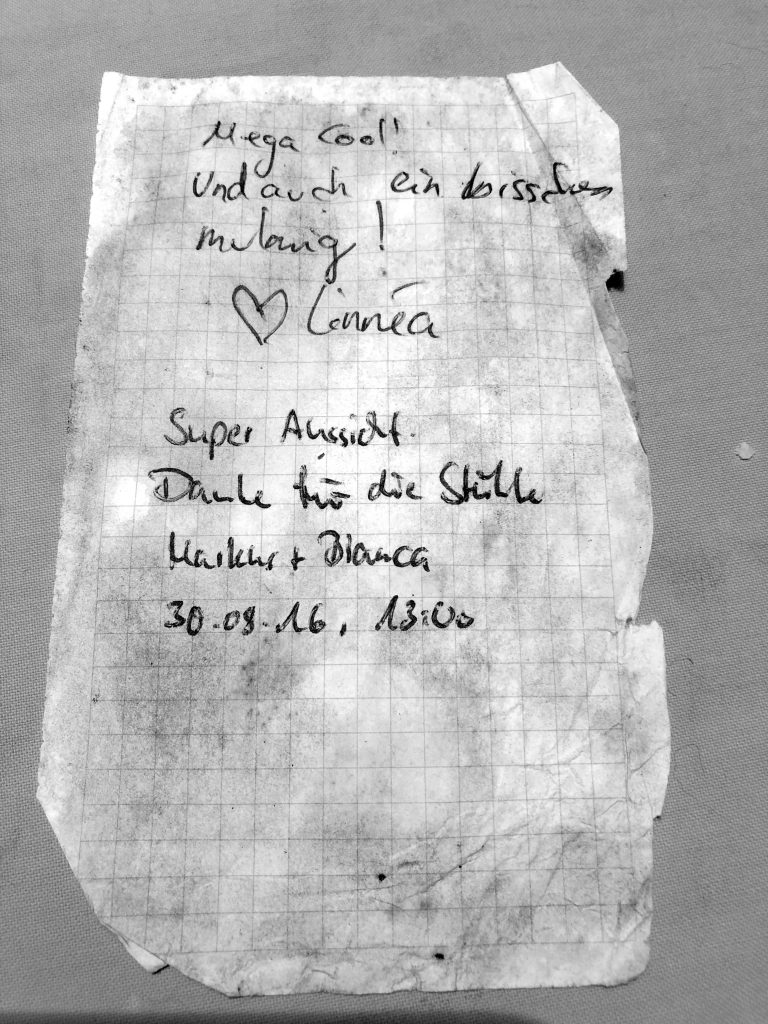 Mega Cool!
Und auch ein bisschen
mulmig!
♡ Linnéa
Super Aussicht.
Danke für die Stühle
Markus + Bianca
30.08.16, 13:00